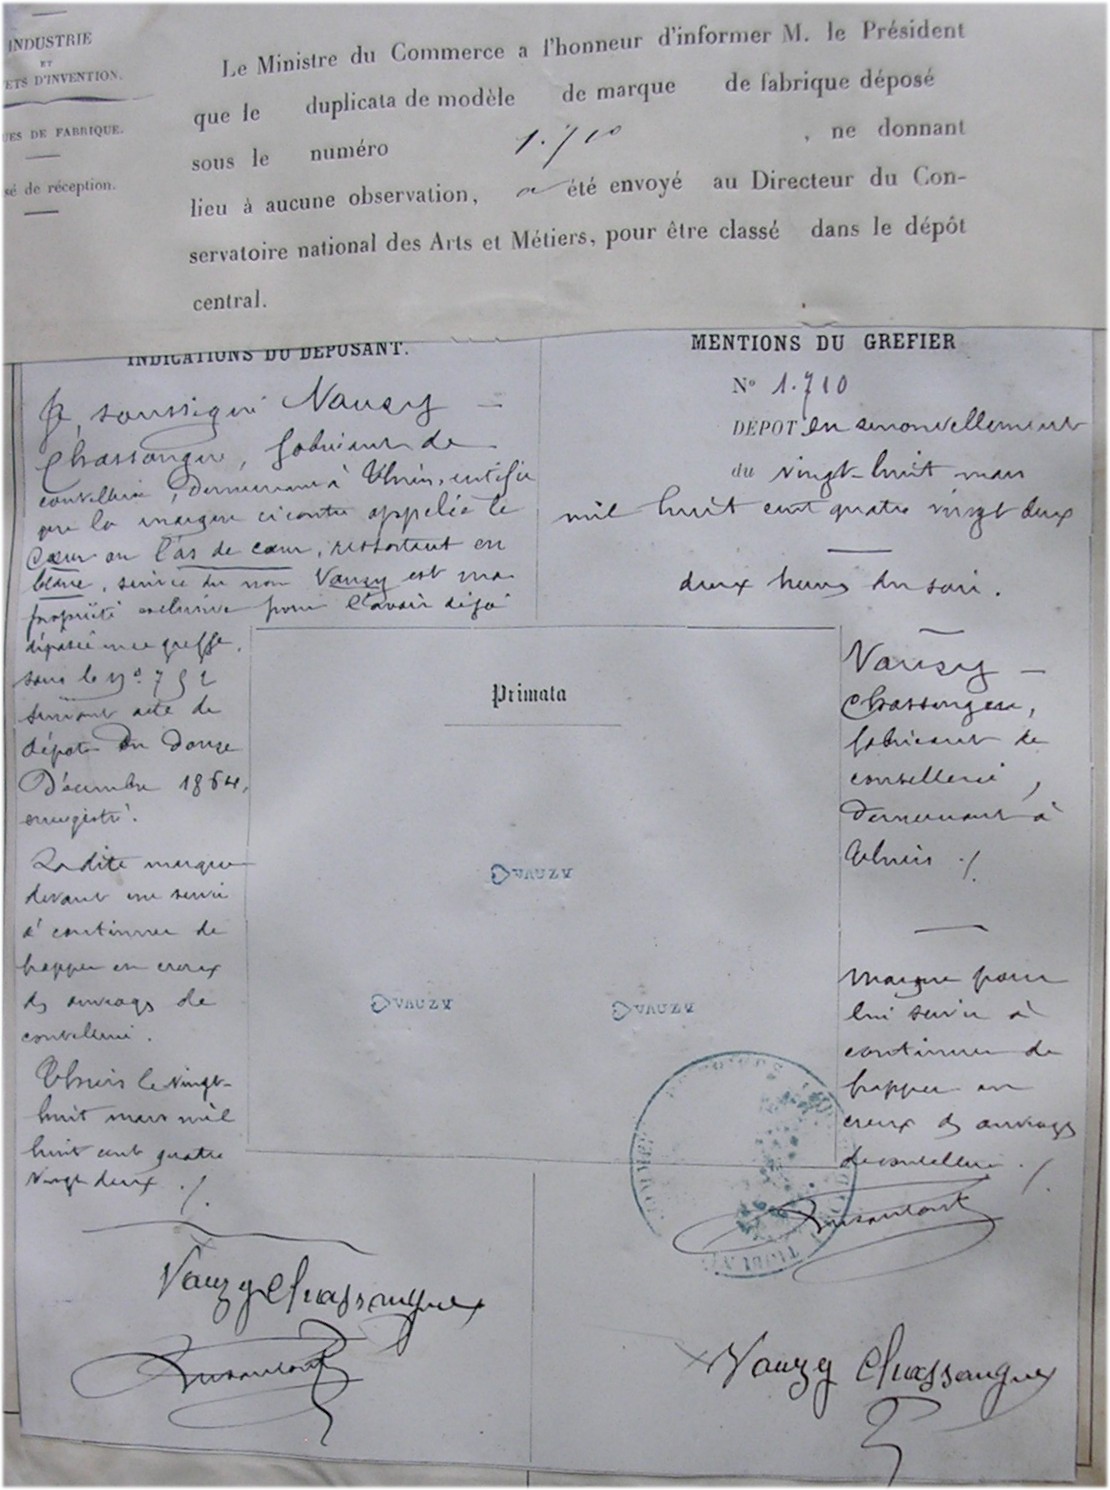 INDUSTRIE
ET
ETS D'INVENTION.
UES DE FABRIQUE.
sé de réception.
Le Ministre du Commerce a l'honneur d'informer M. le Président
que le duplicata de modèle de marque de fabrique déposé
sous le numéro 1.710 , ne donnant
lieu à aucune observation, a été envoyé au Directeur du Con-
servatoire national des Arts et Métiers, pour être classé dans le dépôt
central.
INDICATIONS DU DÉPOSANT.
Je, soussigné Vauzy –
Chassangue, fabricant de
coutellerie, demeurant à Thiers, certifie
que la marque ci contre appelée le
Cœur ou l'as de cœur, ressortant en
blanc, suivie du nom Vauzy est ma
propriété exclusive pour l'avoir déjà
déposée au greffe,
sous le N° 752
suivant acte de
dépôt du douze
Décembre 1864,
enregistré.
Ladite marque
devant me servir
à continuer de
frapper en creux
des ouvrages de
coutellerie.
Thiers le vingt-
huit mars mil
huit cent quatre
vingt deux ./.
Vauzy Chassangue
MENTIONS DU GREFIER
N° 1.710
DÉPOT en renouvellement
du vingt-huit mars
mil huit cent quatre vingt deux
deux heures du soir.
Vauzy –
Chassangue,
fabricant de
coutellerie,
demeurant à
Thiers ./.
Marque pour
lui servir à
continuer de
frapper en
creux des ouvrages
de coutellerie ./.
Vauzy Chassangue
Primata
VAUZY
VAUZY
VAUZY